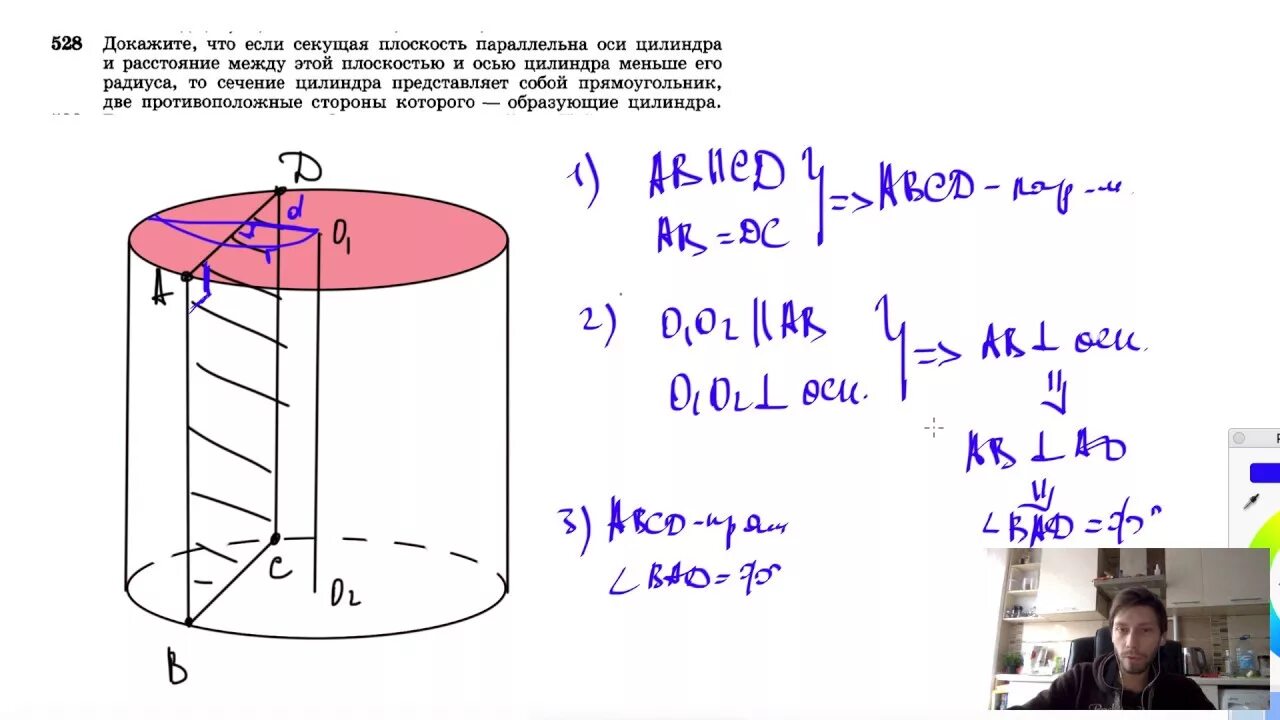 528 Докажите, что если секущая плоскость параллельна оси цилиндра
и расстояние между этой плоскостью и осью цилиндра меньше его
радиуса, то сечение цилиндра представляет собой прямоугольник,
две противоположные стороны которого — образующие цилиндра.
D
d
O₁
A
C
O₂
B
1) AB || CD
AB = DC
=> ABCD – пар-м.
2) O₁O₂ || AB
O₁O₂ ⊥ осн.
=> AB ⊥ осн.
⇓
AB ⊥ AD
⇓
∠BAD = 90°
3) ABCD – прям
∠BAD = 90°